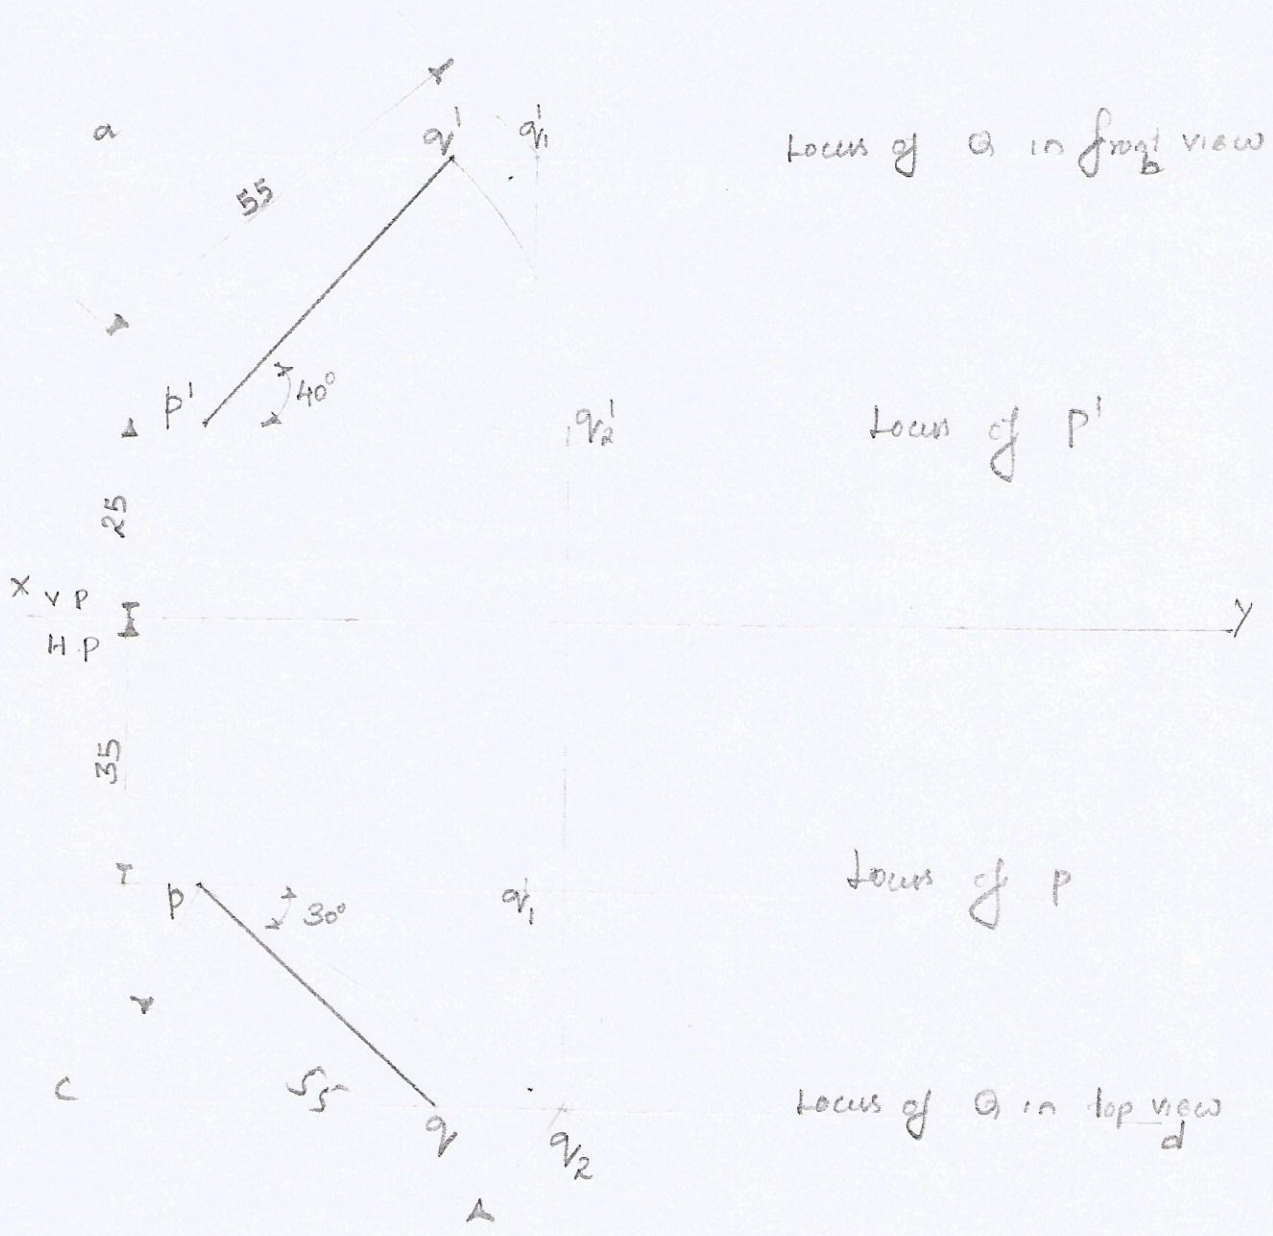 a
q' q'1
Locus of Q in front view
b
55
p'
40°
q'2
Locus of p'
25
X
VP
HP
Y
35
p
30°
q1
Locus of p
c
55
q
q2
Locus of Q in top view
d